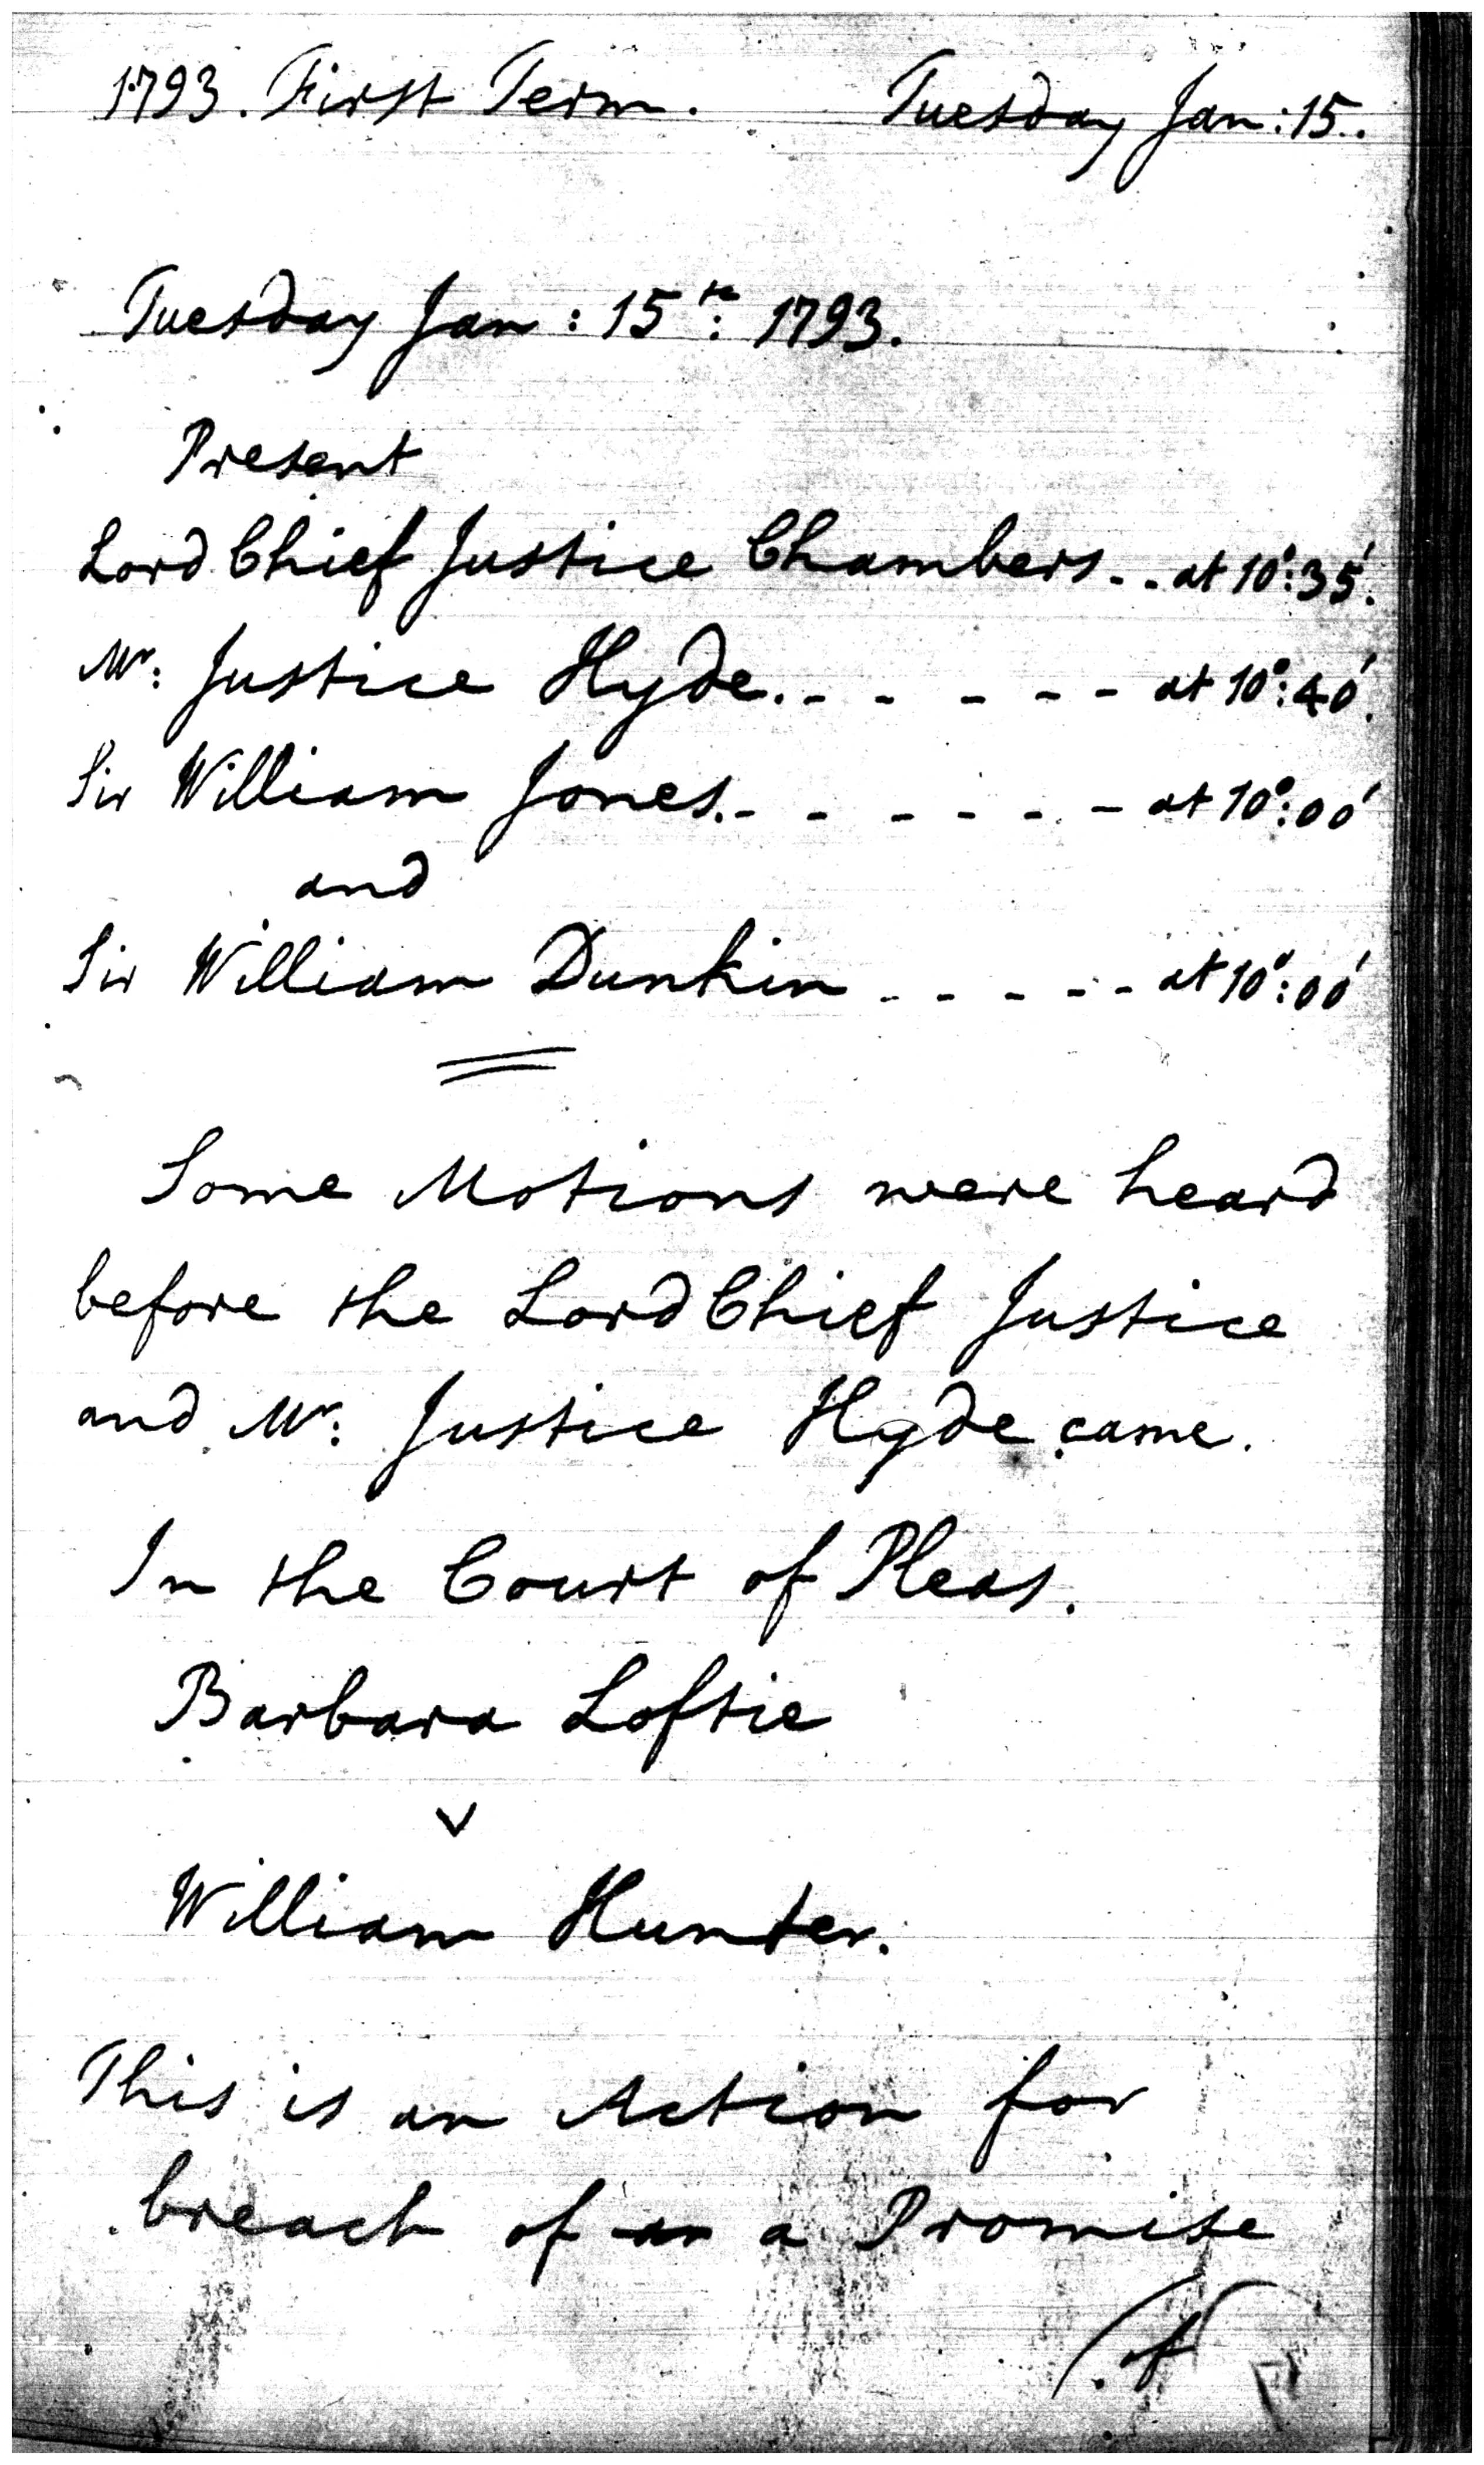 1793. First Term. Tuesday Jan: 15..
Tuesday Jan: 15th: 1793.
Present
Lord Chief Justice Chambers - - at 10°:35'.
Mr: Justice Hyde. - - - - - at 10°:40'.
Sir William Jones. - - - - - - at 10°:00'
and
Sir William Dunkin - - - - - at 10°:00'
Some Motions were heard
before the Lord Chief Justice
and Mr: Justice Hyde came.
In the Court of Pleas.
Barbara Loftie
v
William Hunter.
This is an Action for
breach of an a Promise
(of